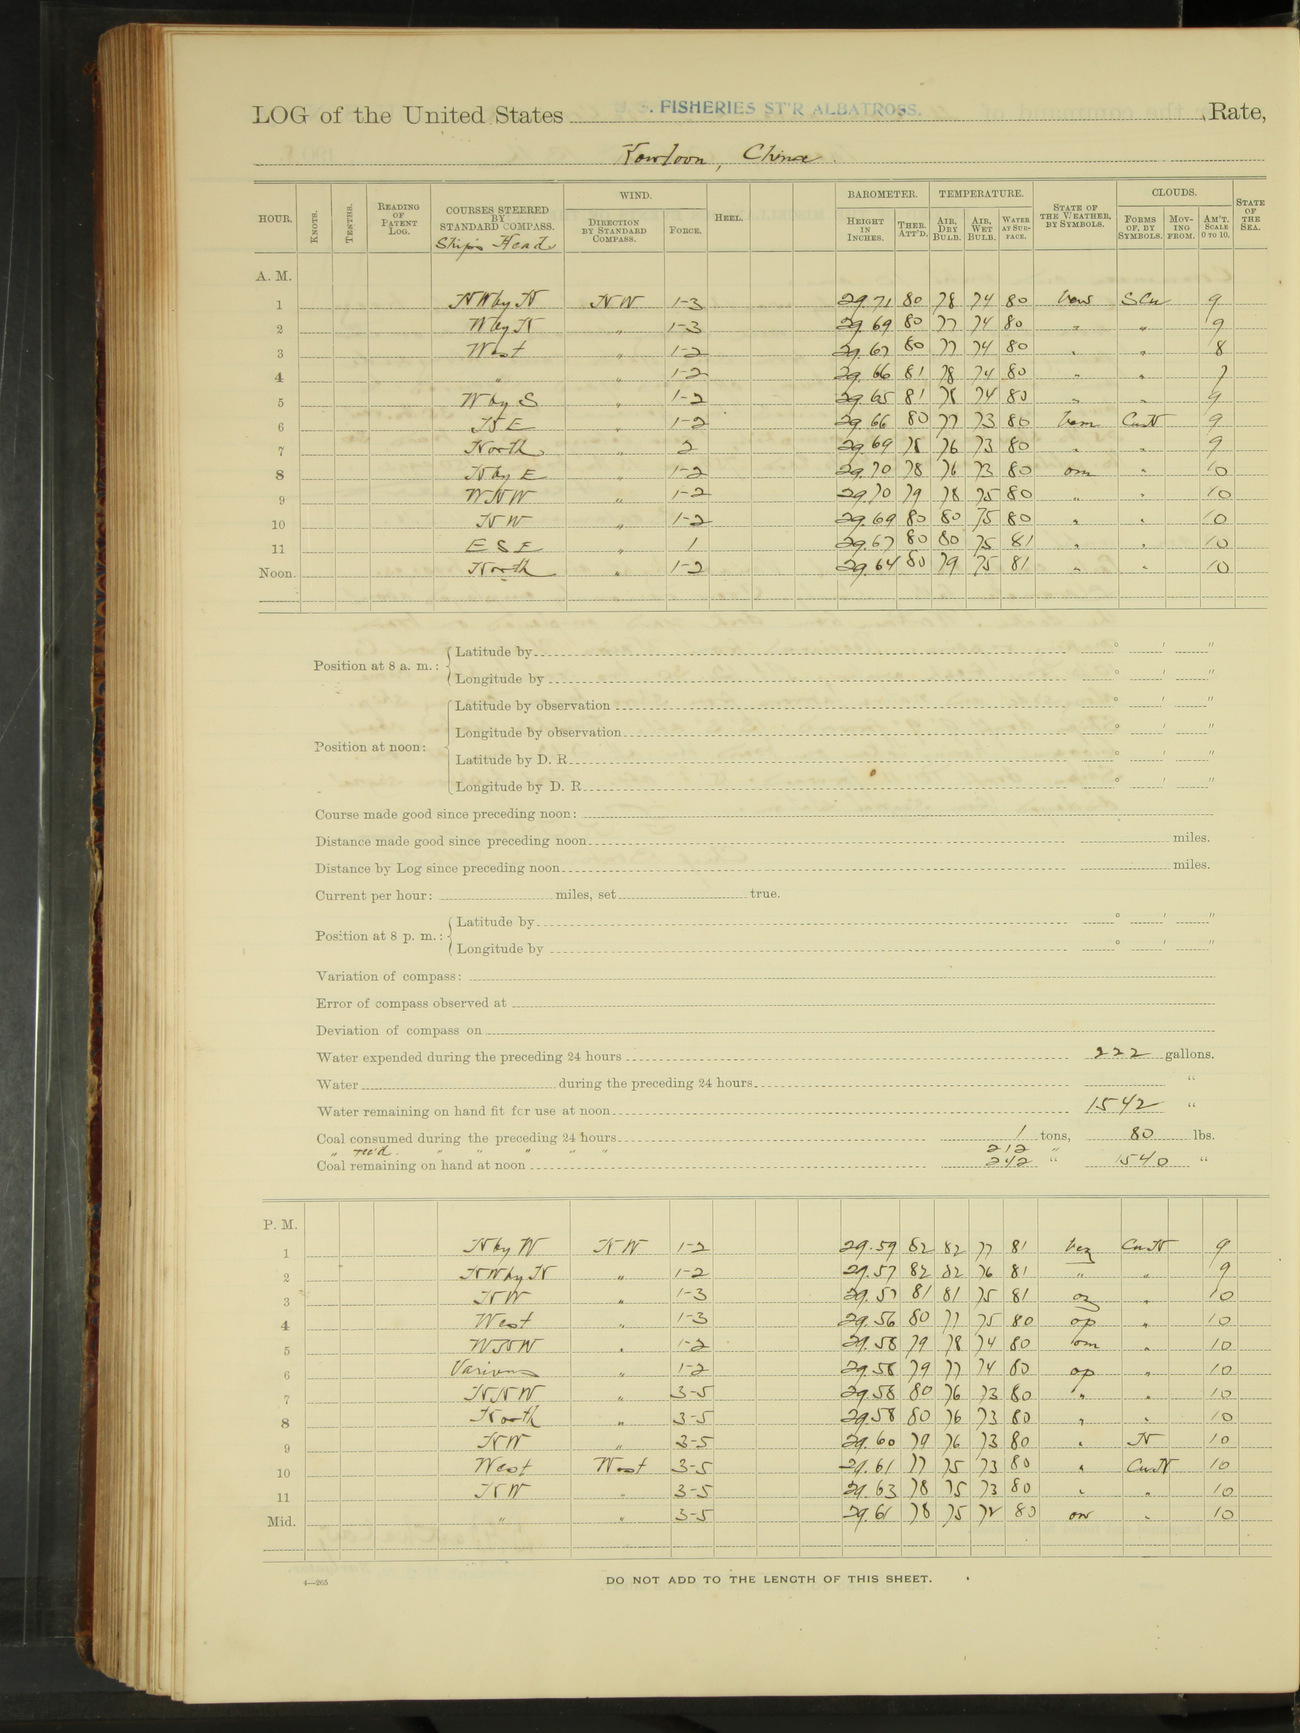 LOG of the United States FISHERIES ST'R ALBATROSS. , Rate,
Kowloon, China.
HOUR. KNOTS. TENTHS. READING OF PATENT LOG. COURSES STEERED BY STANDARD COMPASS. Ship's Head WIND. DIRECTION BY STANDARD COMPASS. FORCE. HEEL. BAROMETER. HEIGHT IN INCHES. THER. ATT'D. TEMPERATURE. AIR, DRY BULB. AIR, WET BULB. WATER AT SURFACE. STATE OF THE WEATHER, BY SYMBOLS. CLOUDS. FORMS OF, BY SYMBOLS. MOVING FROM. AM'T. SCALE 0 TO 10. STATE OF THE SEA.
A. M.
1 NW by N NW 1-3 29.71 80 78 74 80 S Cu 9
2 W by N " 1-3 29.69 80 77 74 80 " " 9
3 West " 1-2 29.67 80 77 74 80 " " 8
4 " " 1-2 29.66 81 78 74 80 " " 7
5 W by S " 1-2 29.65 81 78 74 80 " " 9
6 NE " 1-2 29.66 80 77 73 80 bcm Cu N 9
7 North " 2 29.69 78 76 73 80 " " 9
8 N by E " 1-2 29.70 78 76 73 80 om " 10
9 WNW " 1-2 29.70 79 78 75 80 " " 10
10 NW " 1-2 29.69 80 80 75 80 " " 10
11 ESE " 1 29.67 80 80 75 81 " " 10
Noon. North " 1-2 29.64 80 79 75 81 " " 10
Position at 8 a. m.: Latitude by ° ' "
Longitude by ° ' "
Position at noon: Latitude by observation ° ' "
Longitude by observation ° ' "
Latitude by D. R. ° ' "
Longitude by D. R. ° ' "
Course made good since preceding noon:
Distance made good since preceding noon miles.
Distance by Log since preceding noon miles.
Current per hour: miles, set true.
Position at 8 p. m.: Latitude by ° ' "
Longitude by ° ' "
Variation of compass:
Error of compass observed at
Deviation of compass on
Water expended during the preceding 24 hours 222 gallons.
Water during the preceding 24 hours "
Water remaining on hand fit for use at noon 1542 "
Coal consumed during the preceding 24 hours 1 tons, 80 lbs.
" rec'd. " " " " " 212 "
Coal remaining on hand at noon 242 " 1540 "
P. M.
1 N by W NW 1-2 29.59 82 82 77 81 bcz Cu N 9
2 NW by N " 1-2 29.57 82 82 76 81 " " 9
3 NW " 1-3 29.57 81 81 75 81 oz " 10
4 West " 1-3 29.56 80 77 75 80 op " 10
5 WNW " 1-2 29.58 79 78 74 80 om " 10
6 Various " 1-2 29.58 79 77 74 80 op " 10
7 NNW " 3-5 29.58 80 76 73 80 " " 10
8 North " 3-5 29.58 80 76 73 80 " " 10
9 NW " 3-5 29.60 79 76 73 80 " N 10
10 West West 3-5 29.61 77 75 73 80 " Cu N 10
11 NW " 3-5 29.63 78 75 73 80 " " 10
Mid. " " 3-5 29.61 78 75 72 80 " 10
4—265 DO NOT ADD TO THE LENGTH OF THIS SHEET.